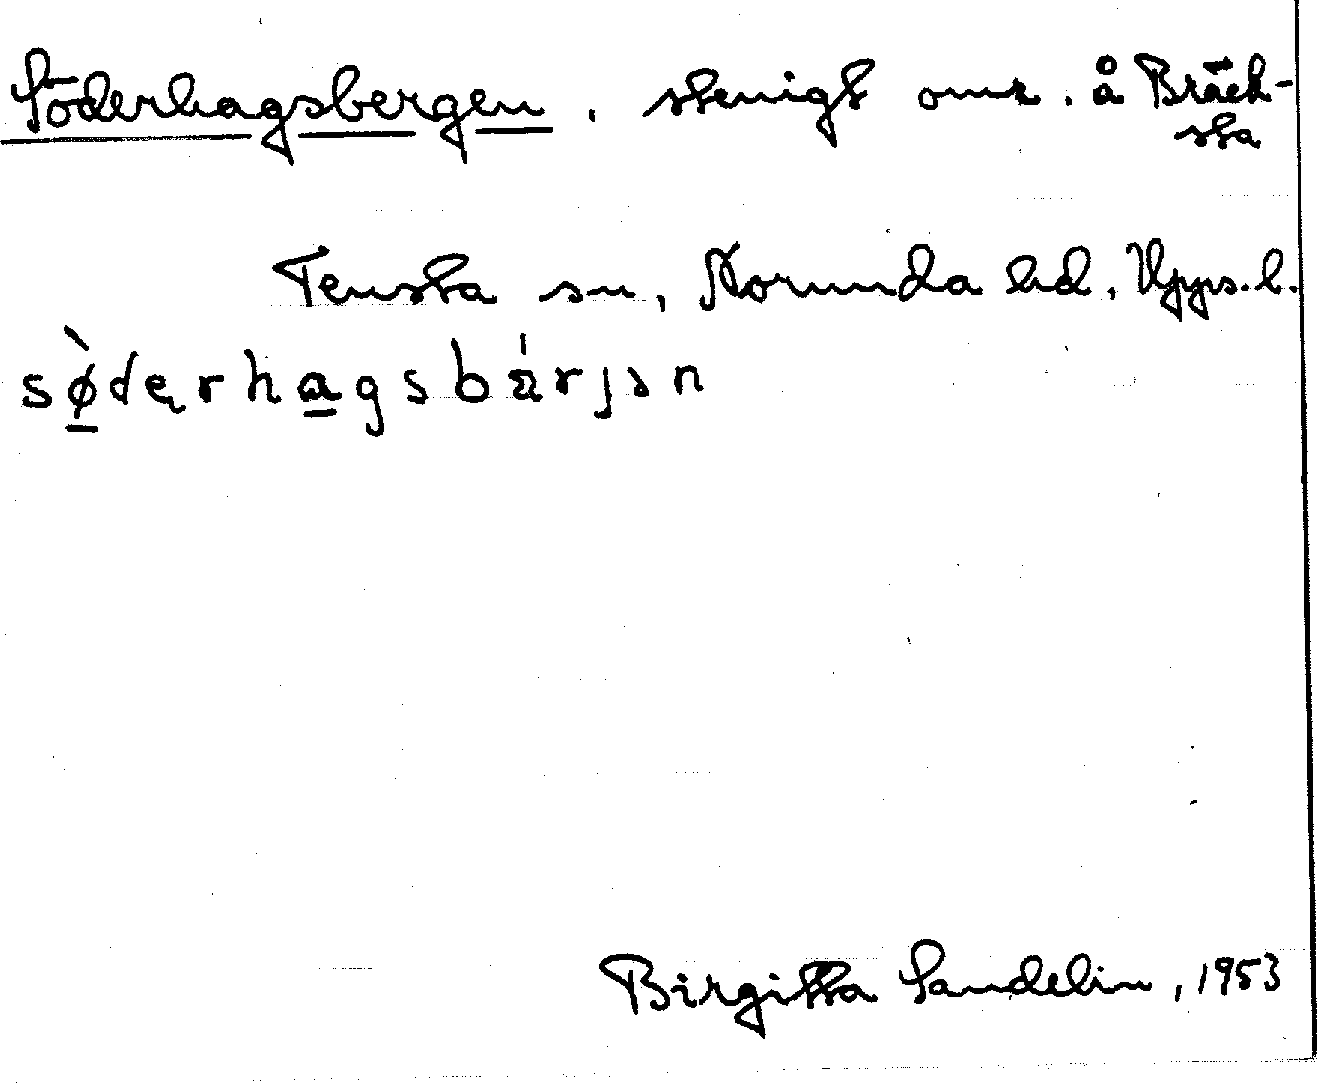 Söderhagsbergen, stenigt omr. å Bräck-
sta
Tensta sn, Norunda hd, Upps. l.
sø̀derhagsbárjən
Birgitta Sandelin, 1953